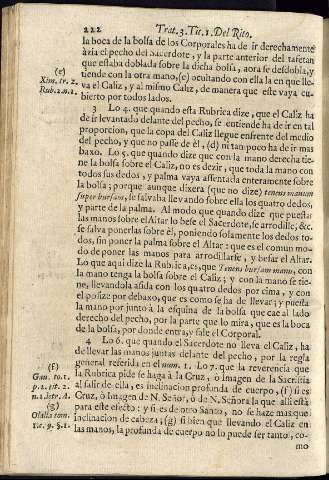 222 Trat. 3. Tit. 1. Del Rito.
la boca de la bolsa de los Corporales ha de ir derechamente
àzia el pecho del Sacerdote, y la parte anterior del tafetan
que estaba doblada sobre la dicha bolsa, aora se desdobla, y
tiende con la otra mano, (e) ocultando con ella la en que lle-
va el Caliz, y al mismo Caliz, de manera que este vaya cu-
bierto por todos lados.
(e)
Xim. tr. 2.
Rub. 2. n. 1.
3 Lo 4. que quando esta Rubrica dize, que el Caliz ha
de ir levantado delante del pecho, se entiende ha de ir en tal
proporcion, que la copa del Caliz llegue enfrente del medio
del pecho, y que no passe de èl, (d) ni tampoco ha de ir mas
baxo. Lo 5. que quando dize que con la mano derecha tie-
ne la bolsa sobre el Caliz, no es dezir, que toda la mano con
todos sus dedos, y palma vaya assentada enteramente sobre
la bolsa; porque aunque dixera (que no dize) tenens manum
super bursam, se salvaba llevando sobre ella los quatro dedos,
y parte de la palma. Al modo que quando dize que puestas
las manos sobre el Altar lo bese el Sacerdote, se arrodille, &c.
se salva ponerlas sobre èl, poniendo solamente los dedos to-
dos, sin poner la palma sobre el Altar: que es el comun mo-
do de poner las manos para arrodillarse, y besar el Altar.
Lo que aqui dize la Rubrica, es, que Tenens bursam manu, con
la mano tenga la bolsa sobre el Caliz; y con la mano se tie-
ne, llevandola asida con los quatro dedos por cima, y con
el polize por debaxo, que es como se ha de llevar; y puesta
la mano por junto à la esquina de la bolsa que cae al lado
derecho del pecho, por la parte que lo mira, que es la boca
de la bolsa, por donde entra, y sale el Corporal.
4 Lo 6. que quando el Sacerdote no lleva el Caliz, ha
de llevar las manos juntas delante del pecho, por la regla
general referida en el num. 1. Lo 7. que la reverencia que
la Rubrica pide se haga à la Cruz, ò Imagen de la Sacristia
al salir de ella, es inclinacion profunda de cuerpo, (f) si es
Cruz, ò Imagen de N. Señor, ò de N. Señora la que alli està
para este efecto: y si es de otro Santo, no se haze mas que
inclinacion de cabeza; (g) si bien que llevando el Caliz en
las manos, la profunda de cuerpo no lo puede ser tanto, co-
mo
(f)
Gau. to. 1.
p. 2. tit. 2.
n. 1. letr. A.
(g)
Olalla tom.
tit. 9. §. 1.